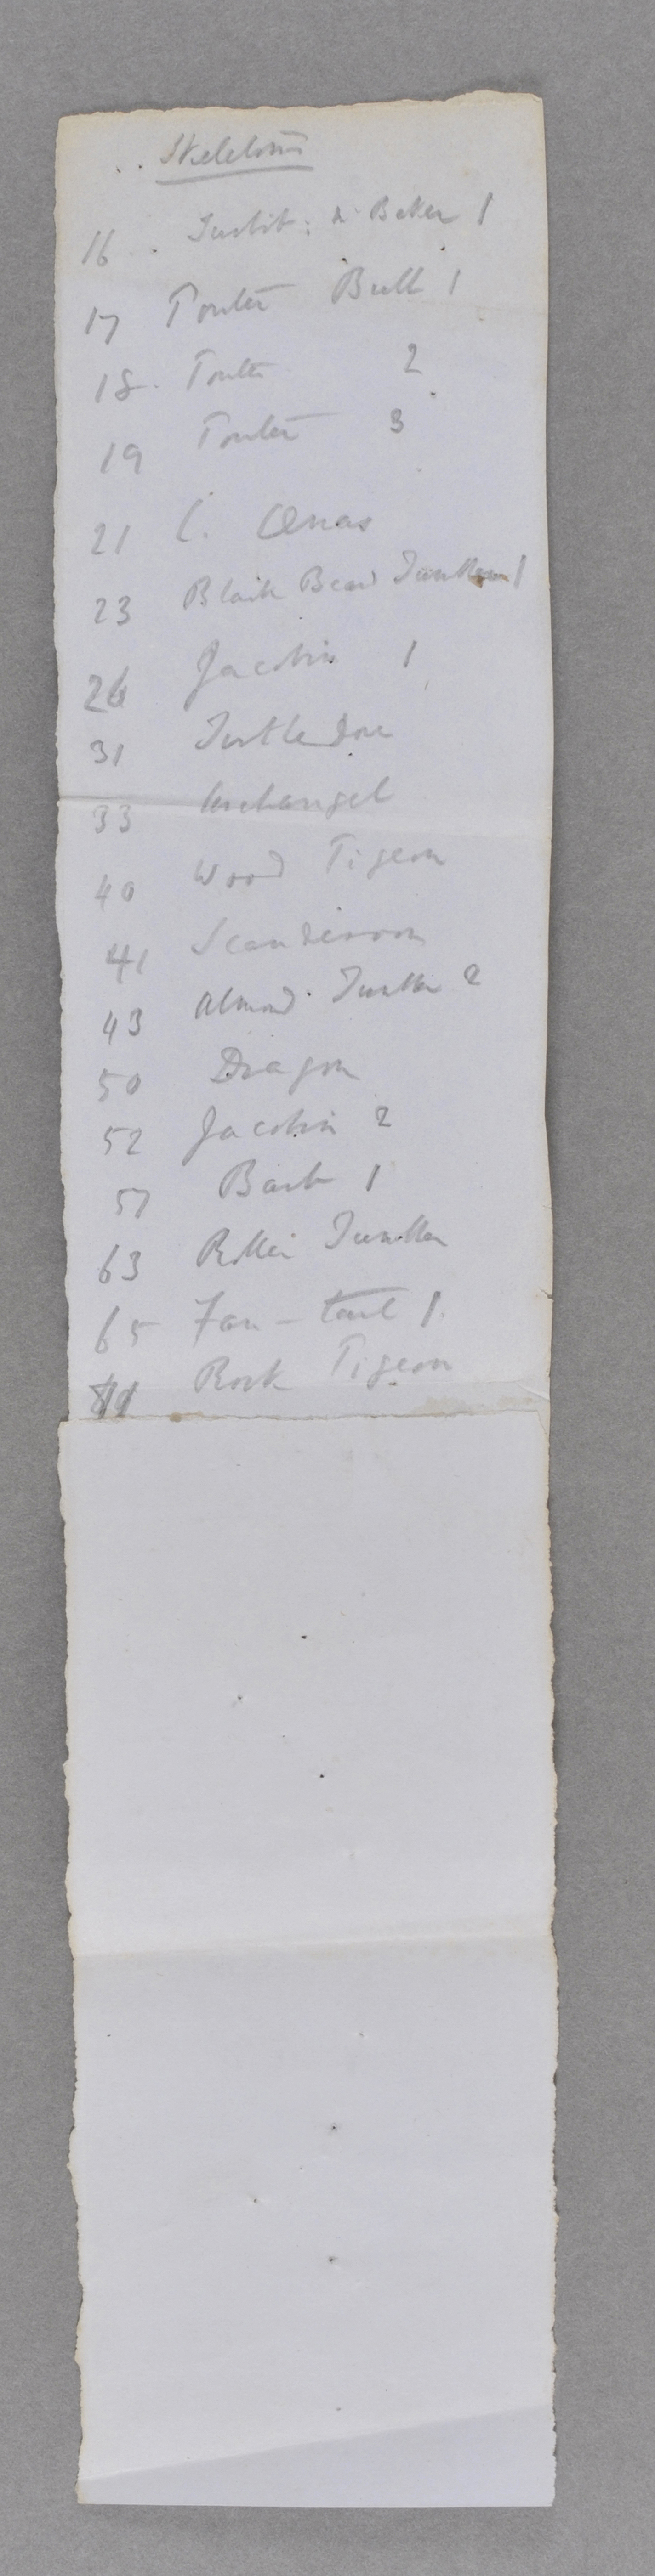 Skeletons
16 Turbit: Mr Baker 1
17 Pouter Bult 1
18. Pouter 2
19 Pouter 3
21 C. Œnas
23 Black Bead Tumbler 1
26 Jacobin 1
31 Turtle dove
33 Archangel
40 Wood Pigeon
41 Scanderoon
43 Almond Tumbler 2
50 Dragon
52 Jacobin 2
57 Barb 1
63 Roller Tumbler
65 Fan-tail 1
Rock Pigeon